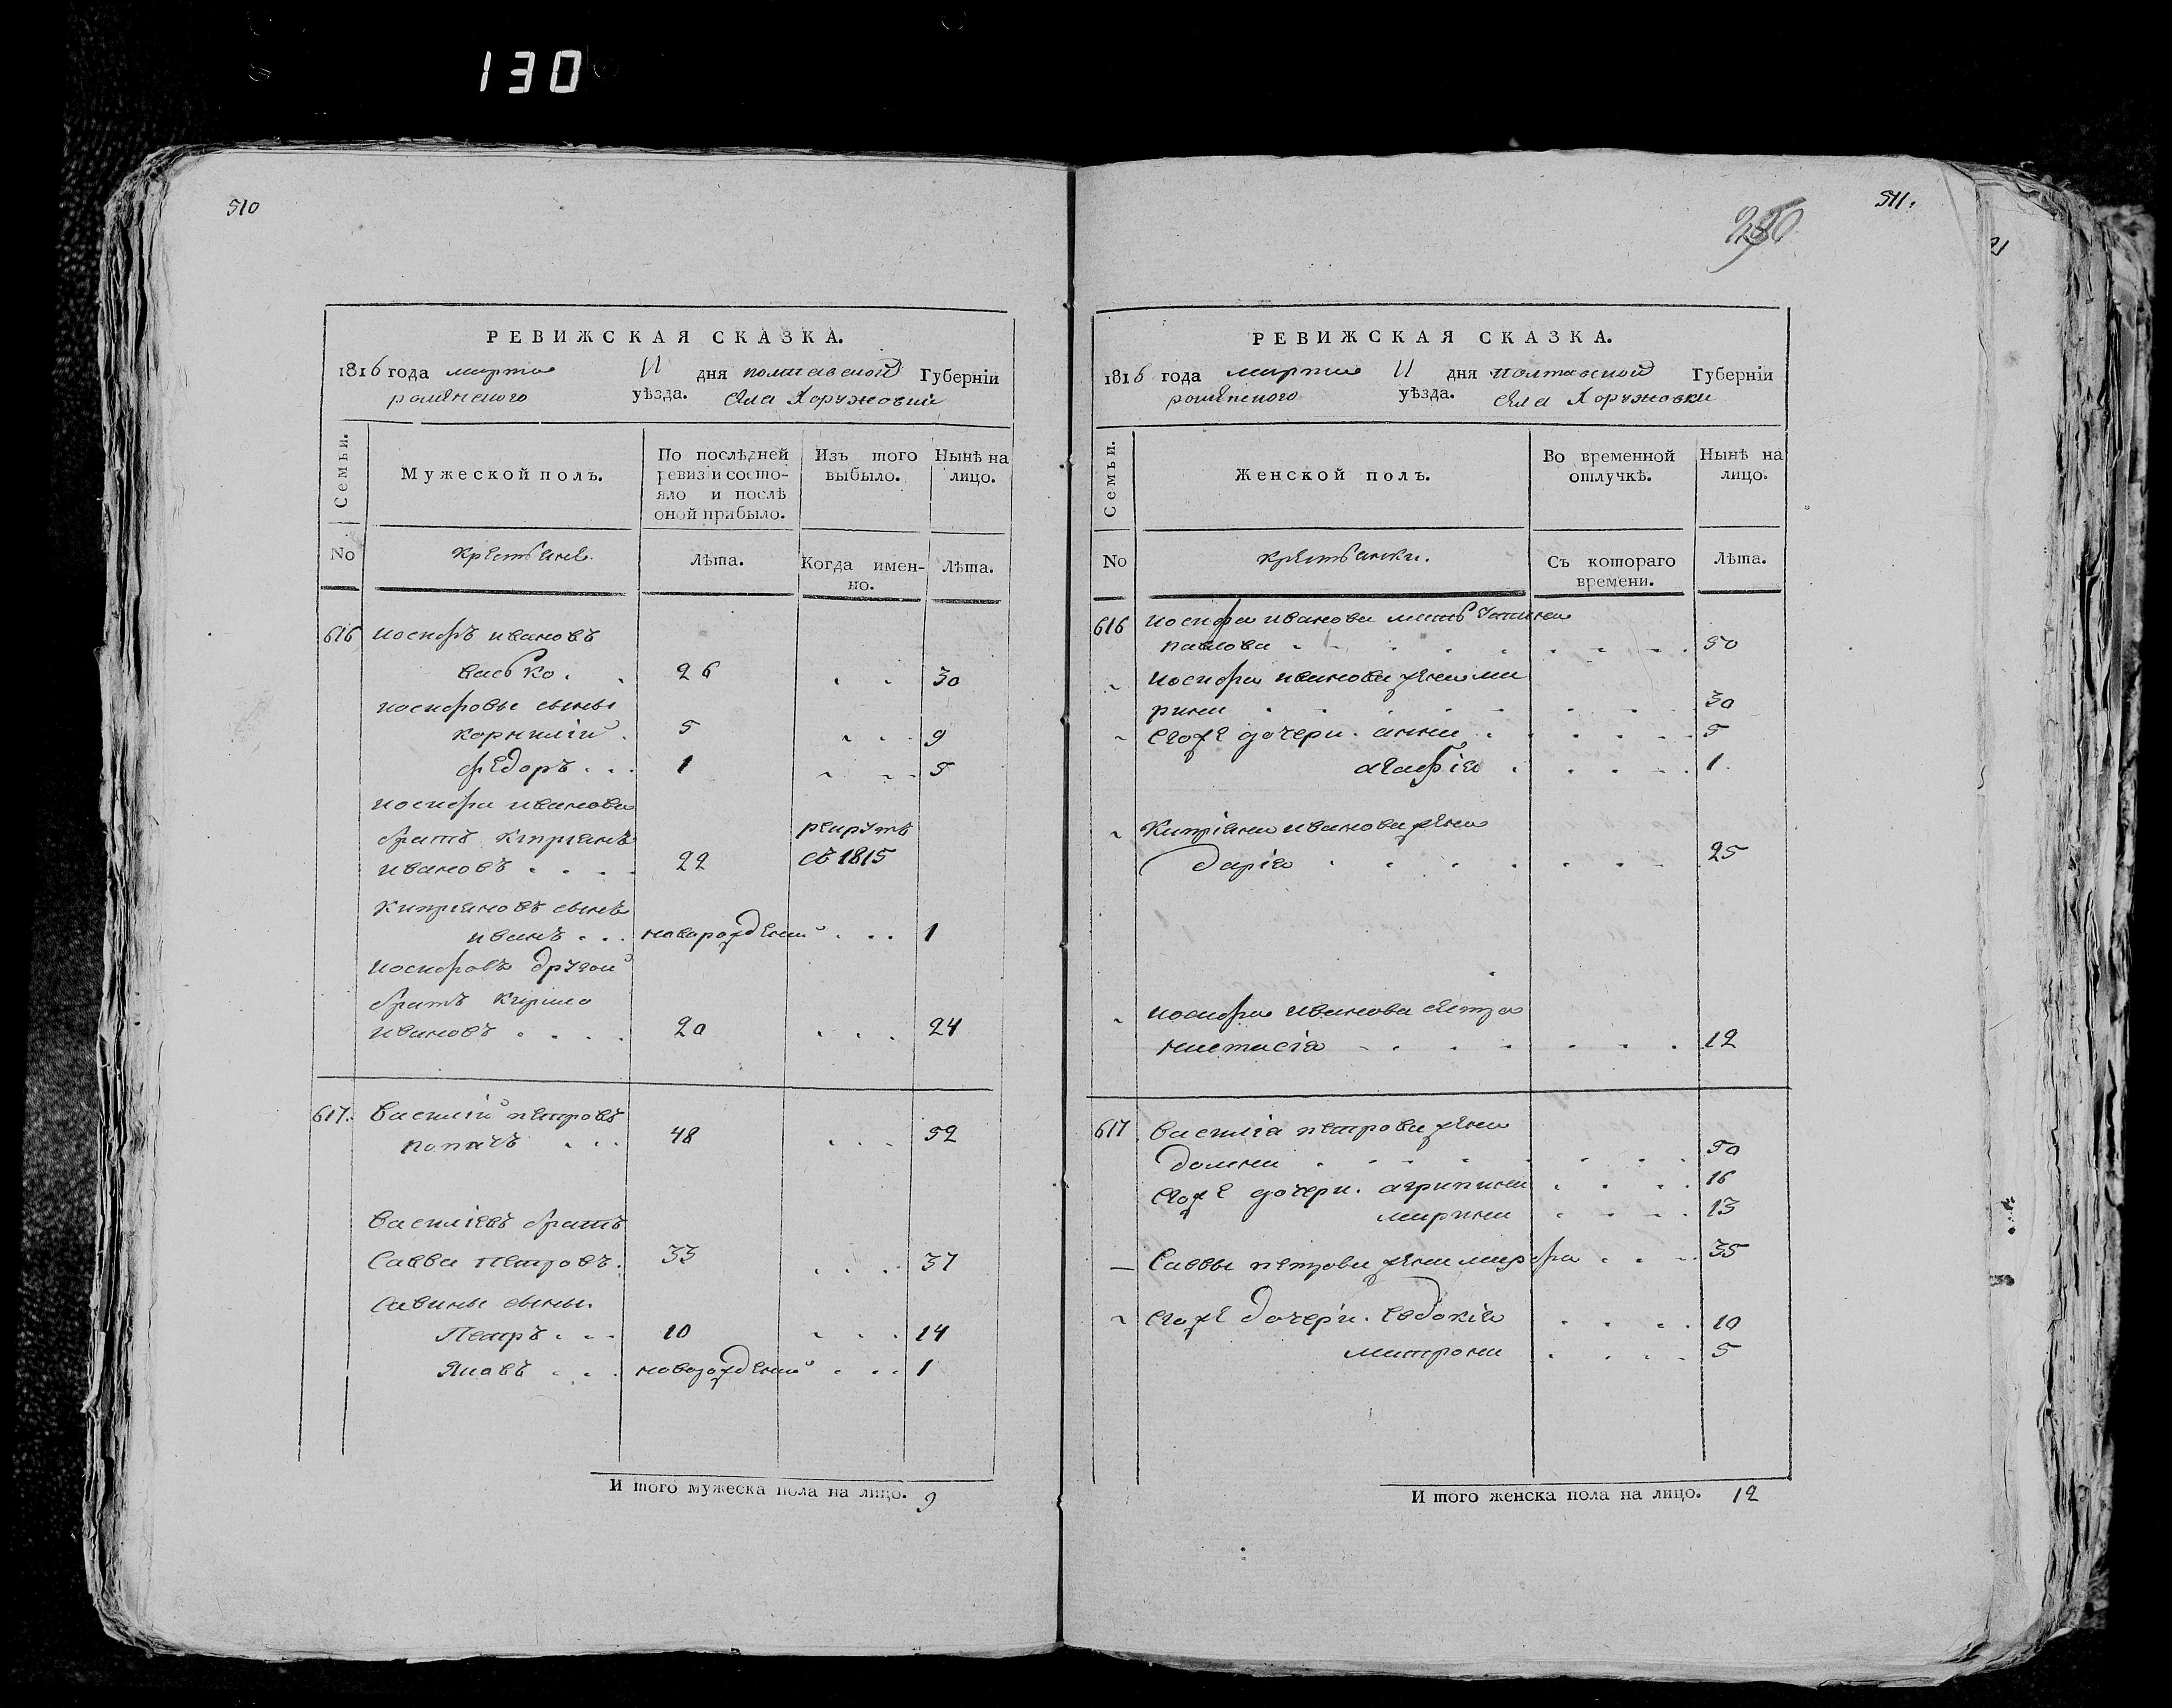 130
510
РЕВИЖСКАЯ СКАЗКА.
1816 года марта 11 дня полтавской Губерніи
роменского уѣзда. села Хоружовки
Семьи.
Мужеской полъ.
По послѣдней ревизіи состояло и послѣ оной прибыло.
Изъ того выбыло.
Нынѣ на лицо.
No
крестьяне.
Лѣта.
Когда именно.
Лѣта.
616 иосифъ ивановъ
васько . . 26 . . 30
иосифовы сыны
корнилій . 5 . . 9
федоръ . . . 1 . . . 5
иосифа иванова
братъ киприянъ рекрутъ
ивановъ . . . . 22 съ 1815
киприяновъ сынъ
иванъ . . . новорожденый . . . 1
иосифовъ другой
братъ кирило
ивановъ . . . . 20 . . . 24
617. василій петровъ
. . . 48 . . . 52
василіевъ братъ
савва петровъ . 33 . . . 37
савины сыны.
Петръ . . . 10 . . . 14
Яковъ . . . новорожденый . . . 1
И того мужеска пола на лицо. 9
511.
250
РЕВИЖСКАЯ СКАЗКА.
1816 года марта 11 дня полтавской Губерніи
роменского уѣзда. села Хоружовки
Семьи.
Женской полъ.
Во временной отлучкѣ.
Нынѣ на лицо.
No
крестьянки.
Съ котораго времени.
Лѣта.
616 иосифа иванова мать
павлова . . . . . . . . . 50
иосифа иванова жена ма
рина . . . . . . . . 30
егоже дочери. анна . . . . . 5
агафія . . . . . 1.
Кипріяна иванова жена
дарія . . . . . . . . 25
иосифа иванова сестра
настасія . . . . . . . . . 12
617 василія петрова жена
домна . . . . . . . . 50
егоже дочери. агрипина . . . . 16
марина . . . . 13
Саввы петрова жена марфа . . . 35
егоже дочери. евдокія . . . . 10
матрона . . . . 5
И того женска пола на лицо. 12